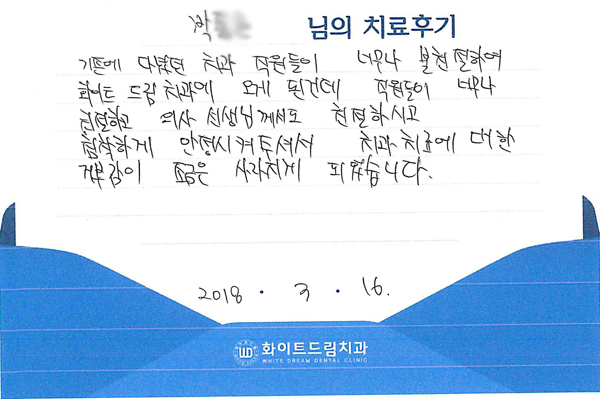 박 님의 치료후기
기존에 다녔던 치과 직원들이 너무나 불친절하여
화이트 드림 치과에 오게 된건데 직원들이 너무나
친절하고 의사 선생님께서도 친절하시고
침착하게 안정시켜주셔서 치과 치료에 대한
거부감이 조금은 사라지게 되었습니다.
2018 · 3 · 16.
WD 화이트드림치과
WHITE DREAM DENTAL CLINIC